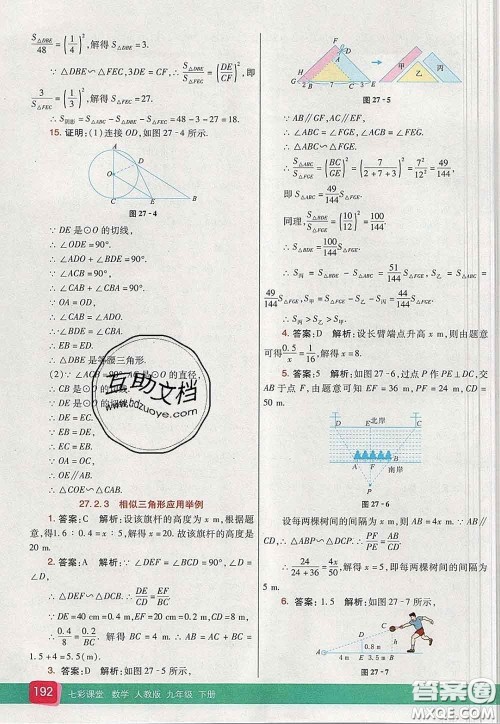 S△DBE/48 = (1/4)², 解得 S△DBE = 3.
∵ △DBE∽△FEC, 3DE = CF, ∴ S△DBE/S△FEC = (DE/CF)², 即
3/S△FEC = (1/3)², 解得 S△FEC = 27.
∴ S阴影 = S△ABC − S△DBE − S△FEC = 48 − 3 − 27 = 18.
15. 证明: (1) 连接 OD, 如图 27-4 所示.
A
D
O
C
E
B
图 27-4
∵ DE 是⊙O 的切线,
∴ ∠ODE = 90°.
∴ ∠ADO + ∠BDE = 90°.
∵ ∠ACB = 90°,
∴ ∠CAB + ∠CBA = 90°.
∵ OA = OD,
∴ ∠CAB = ∠ADO.
∴ ∠BDE = ∠CBA.
∴ EB = ED.
∴ △DBE 是等腰三角形.
(2) ∵ ∠ACB = 90°, AC 是⊙O 的直径,
∴ CB 是⊙O 的切线.
∵ DE 是⊙O 的切线,
∴ DE = EC.
∵ EB = ED,
∴ EC = EB.
∵ OA = OC,
∴ OE∥AB.
∴ △COE∽△CAB.
27.2.3 相似三角形应用举例
1. 答案: C 解析: 设该旗杆的高度为 x m, 根据题
意, 得 1.6∶0.4 = x∶5, 解得 x = 20. 故该旗杆的高度是
20 m.
2. 答案: A 解析: ∵ ∠DEF = ∠BCD = 90°, ∠D =
∠D, ∴ △DEF∽△DCB. ∴ BC/EF = DC/DE.
∵ DE = 40 cm = 0.4 m, EF = 20 cm = 0.2 m, AC =
1.5 m, CD = 8 m,
∴ 0.4/8 = 0.2/BC. 解得 BC = 4. ∴ AB = AC + BC =
1.5 + 4 = 5.5(m).
3. 答案: D 解析: 如图 27-5 所示,
图 27-5
∵ AB∥GF, AC∥EF,
∴ ∠ABC = ∠FGE, ∠ACB = ∠FEG.
∴ △ABC∽△FGE.
∴ S△ABC/S△FGE = (BC/GE)² = (7/(2+7+3))² = 49/144.
即 S△ABC = 49/144 S△FGE.
同理, S△/S△FGE = (10/12)² = 100/144.
∴ S△ = 100/144 S△FGE.
∴ S丙 = S△ − S△ABC = 51/144 S△FGE, S乙 = S△ABC =
49/144 S△FGE, S甲 = S△FGE − S△ = 44/144 S△FGE.
∴ S丙 > S乙 > S甲.
4. 答案: D 解析: 设长臂端点升高 x m, 则由题意
可得 0.5/x = 1/16, 解得 x = 8.
5. 答案: 5 解析: 如图 27-6, 过点 P 作 PE⊥DC, 交
AB 于点 F, 由题意可知 EF = 36 m, PF = 24 m, CD =
50 m.
D
E
C
北岸
A
F
B
南岸
P
图 27-6
设每两棵树间的间隔为 x m, 则 AB = 4x m. ∵ AB∥
CD, ∴ △PAB∽△PDC. ∴ PF/PE = AB/DC.
∴ 24/(24+36) = 4x/50. 解得 x = 5, 即每两棵树间的间隔为
5 m.
6. 答案: 1.5 解析: 如图 27-7 所示,
0.8 m
4 m
图 27-7
互助文档
www.bdzuoye.com
192 七彩课堂 数学 人教版 九年级 下册
答案圈
MXQE.COM